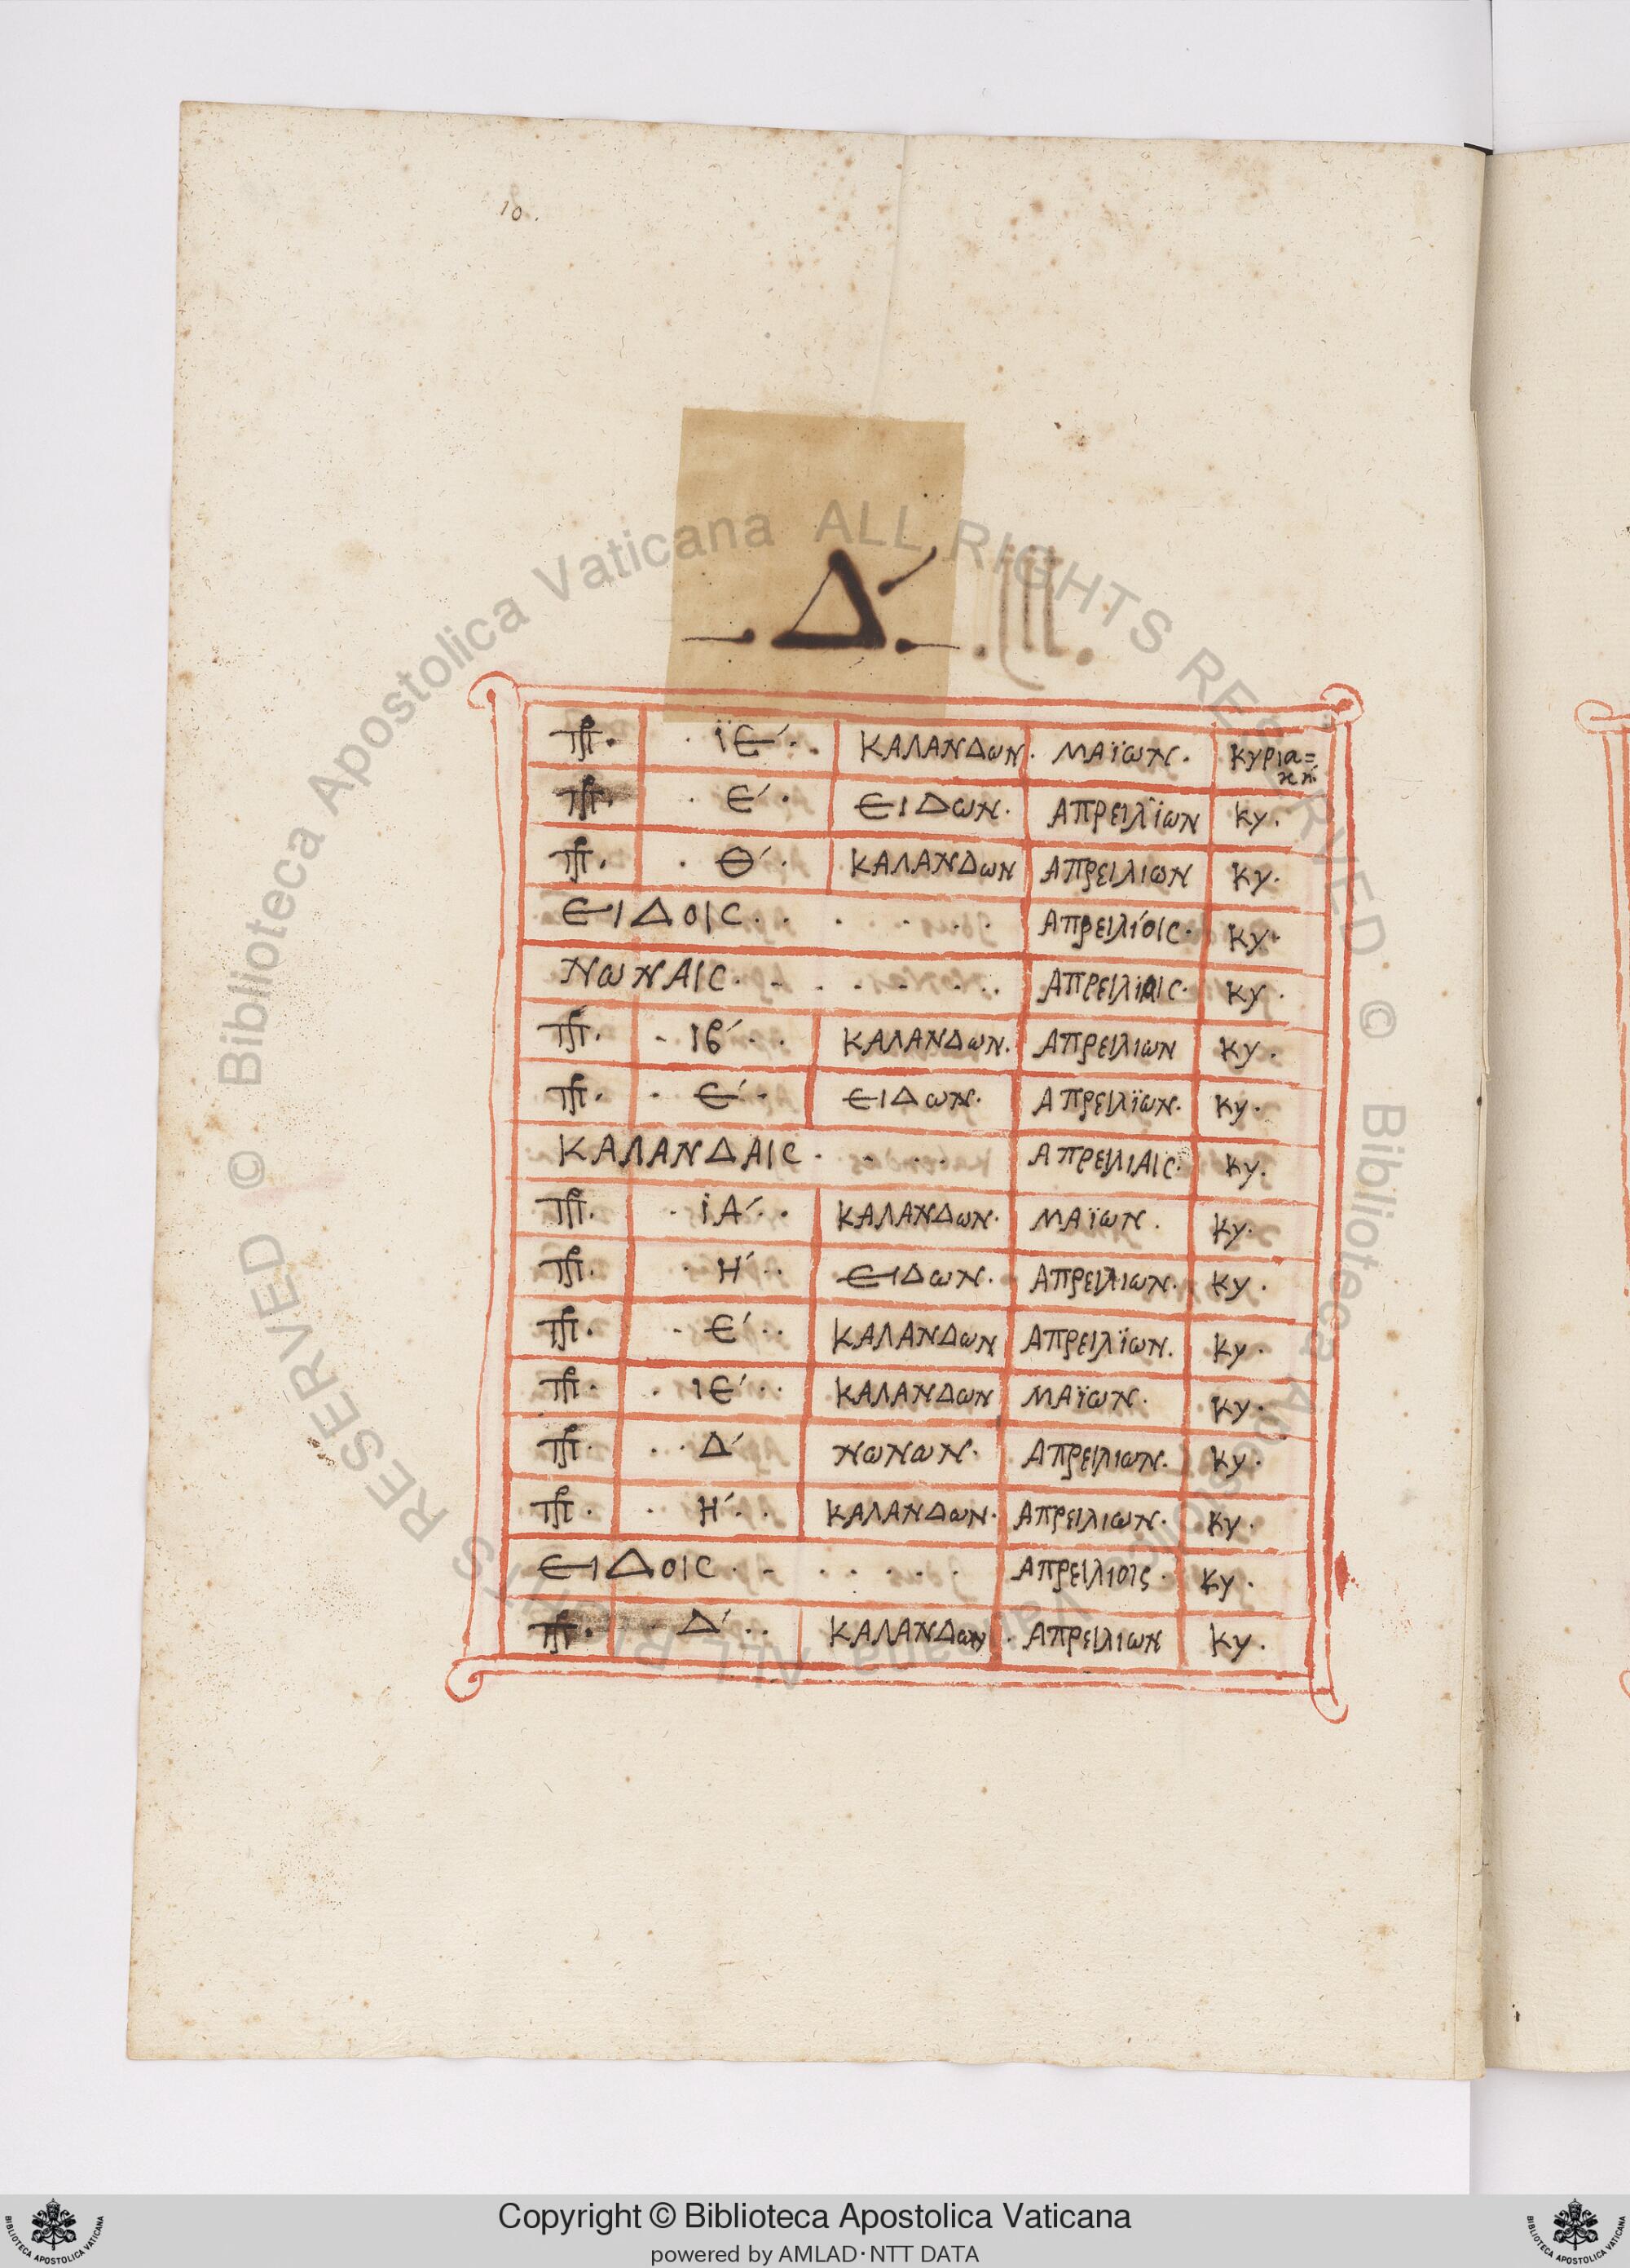 10.
.Δ.
πρ. · ϊε΄·. ΚΑΛΑΝΔωΝ. ΜΑϊωΝ. κυρια=
κή
πρ. · Ε΄· ΕΙΔωΝ. ΑΠΡΕΙΛϊωΝ κυ.
πρ. · Θ΄· ΚΑΛΑΝΔωΝ ΑΠΡΕΙΛΙωΝ κυ.
ΕΙΔΟΙC. . . . . . ΑΠΡΕΙΛίΟΙC. κυ.
ΝωΝΑΙC. - . - - . . ΑΠΡΕΙΛΙΑΙC. κυ.
πρ. - Ιβ΄. . ΚΑΛΑΝΔωΝ. ΑΠΡΕΙΛΙωΝ κυ.
πρ. · Ε΄· ΕΙΔωΝ. ΑΠΡΕΙΛϊωΝ. κυ.
ΚΑΛΑΝΔΑΙC. - . . ΑΠΡΕΙΛΙΑΙC. κυ.
πρ. · ΙΑ΄. . ΚΑΛΑΝΔωΝ. ΜΑϊωΝ. κυ.
πρ. · Η΄. . ΕΙΔωΝ. ΑΠΡΕΙΛΙωΝ. κυ.
πρ. - Ε΄. . ΚΑΛΑΝΔωΝ ΑΠΡΕΙΛϊωΝ. κυ.
πρ. · ΙΕ΄. . ΚΑΛΑΝΔωΝ ΜΑϊωΝ. κυ.
πρ. · · Δ΄ ΝωΝωΝ. ΑΠΡΕΙΛΙωΝ. κυ.
πρ. · Η΄. . ΚΑΛΑΝΔωΝ. ΑΠΡΕΙΛΙωΝ. κυ.
ΕΙΔΟΙC. - . . . . . ΑΠΡΕΙΛΙΟΙς. κυ.
πρ. Δ΄. . ΚΑΛΑΝΔωΝ. ΑΠΡΕΙΛΙωΝ κυ.
© Biblioteca Apostolica Vaticana ALL RIGHTS RESERVED
© Biblioteca Apostolica Vaticana ALL RIGHTS RESERVED
Copyright © Biblioteca Apostolica Vaticana
powered by AMLAD·NTT DATA
BIBLIOTECA APOSTOLICA VATICANA
BIBLIOTECA APOSTOLICA VATICANA